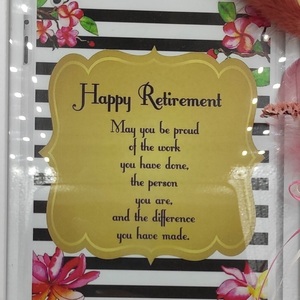 Happy Retirement
May you be proud
of the work
you have done,
the person
you are,
and the difference
you have made.